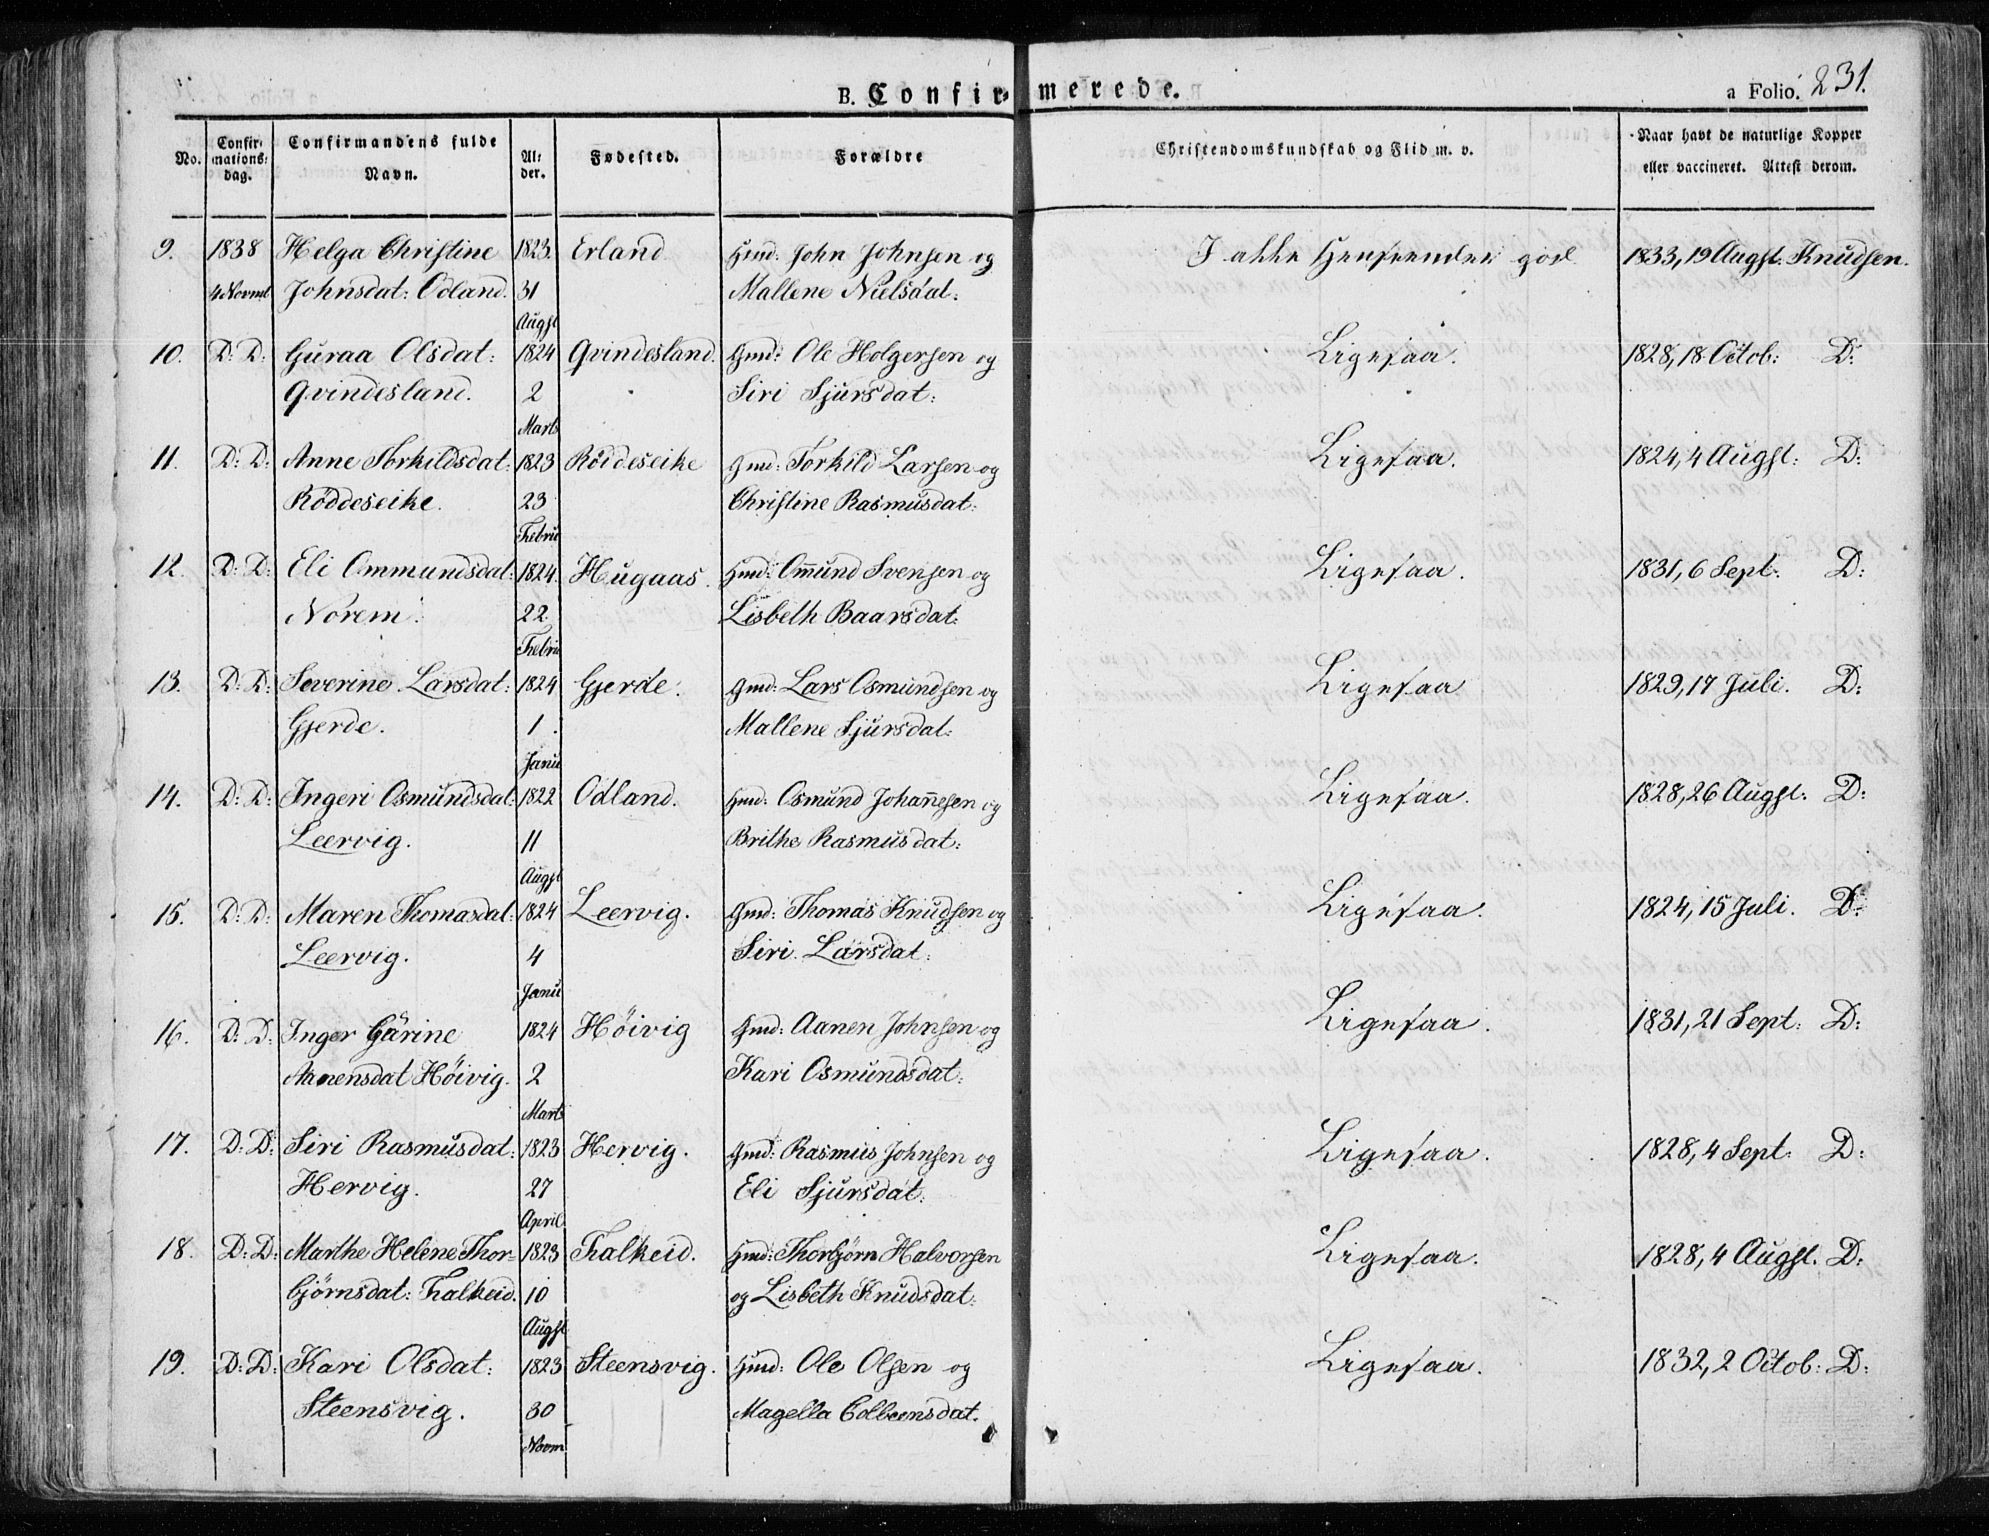 B. Confirmerede. a Folio. 231.
No. Confirmationsdag. Confirmandens fulde Navn. Alder. Fødested. Forældre Christendomskundskab og Flid m. v. Naar havt de naturlige Kopper eller vaccineret. Attest derom.
9. 1838 Helga Christine 1823. Erland Gmd: John Johnsen og I alle Henseender god 1833, 19 Augst. Knudsen.
4 Novmb Johnsdat: Odland. 31 Mallene Nielsdat:
Augst
10. D: D: Guraa Olsdat: 1824 Qvindesland. Gmd: Ole Holgersen og Ligesaa. 1828, 18 Octob: D:
Qvindesland. 2 Siri Sjursdat:
Marts
11. D: D: Anne Torkildsdat: 1823 Röddeseike Gmd: Torkild Larsen og Ligesaa. 1824, 4 Augst: D:
Röddeseike. 23 Christine Rasmusdat:
Febru
12. D: D: Eli Ommundsdat: 1824. Hugaas. Gmd: Om̄und Svensen og Ligesaa. 1831, 6 Sept: D:
Norem. 22. Lisbeth Baarsdat:
Febru
13. D: D: Severine Larsdat: 1824 Gjerde. Gmd: Lars Osmundsen og Ligesaa 1829, 17 Juli. D:
Gjerde. 1. Mallene Sjursdat:
Janu
14. D: D: Ingeri Osmundsdat: 1822 Odland. Gmd: Osmund Johan̄esen og Ligesaa. 1828, 26 Augst: D:
Leervig. 11 Brithe Rasmusdat:
Augst
15. D: D: Maren Thomasdat: 1824 Leervig. Gmd: Thomas Knudsen og Ligesaa. 1824, 15 Juli. D:
Leervig. 4 Siri Larsdat:
Janu
16. D: D: Inger Gurine 1824 Höivig Gmd: Aanen Johnsen og Ligesaa. 1831, 21 Sept: D:
Aanensdat Höivig. 2 Kari Osmundsdat:
Marts
17. D: D: Siri Rasmusdat: 1823 Hervig. Gmd: Rasmus Johnsen og Ligesaa. 1828, 4 Sept: D:
Hervig. 27 Eli Sjursdat:
April
18. D: D: Marthe Helene Thor- 1823 Falkeid. Gmd: Thorbjörn Halvorsen Ligesaa. 1828, 4 Augst. D:
björnsdat: Falkeid. 10 og Lisbeth Knudsdat:
Augst
19. D: D: Kari Olsdat: 1823 Steensvig. Gmd: Ole Olsen og Ligesaa. 1832, 2 Octob: D:
Steensvig. 30 Magella Colbeensdat.
Novm